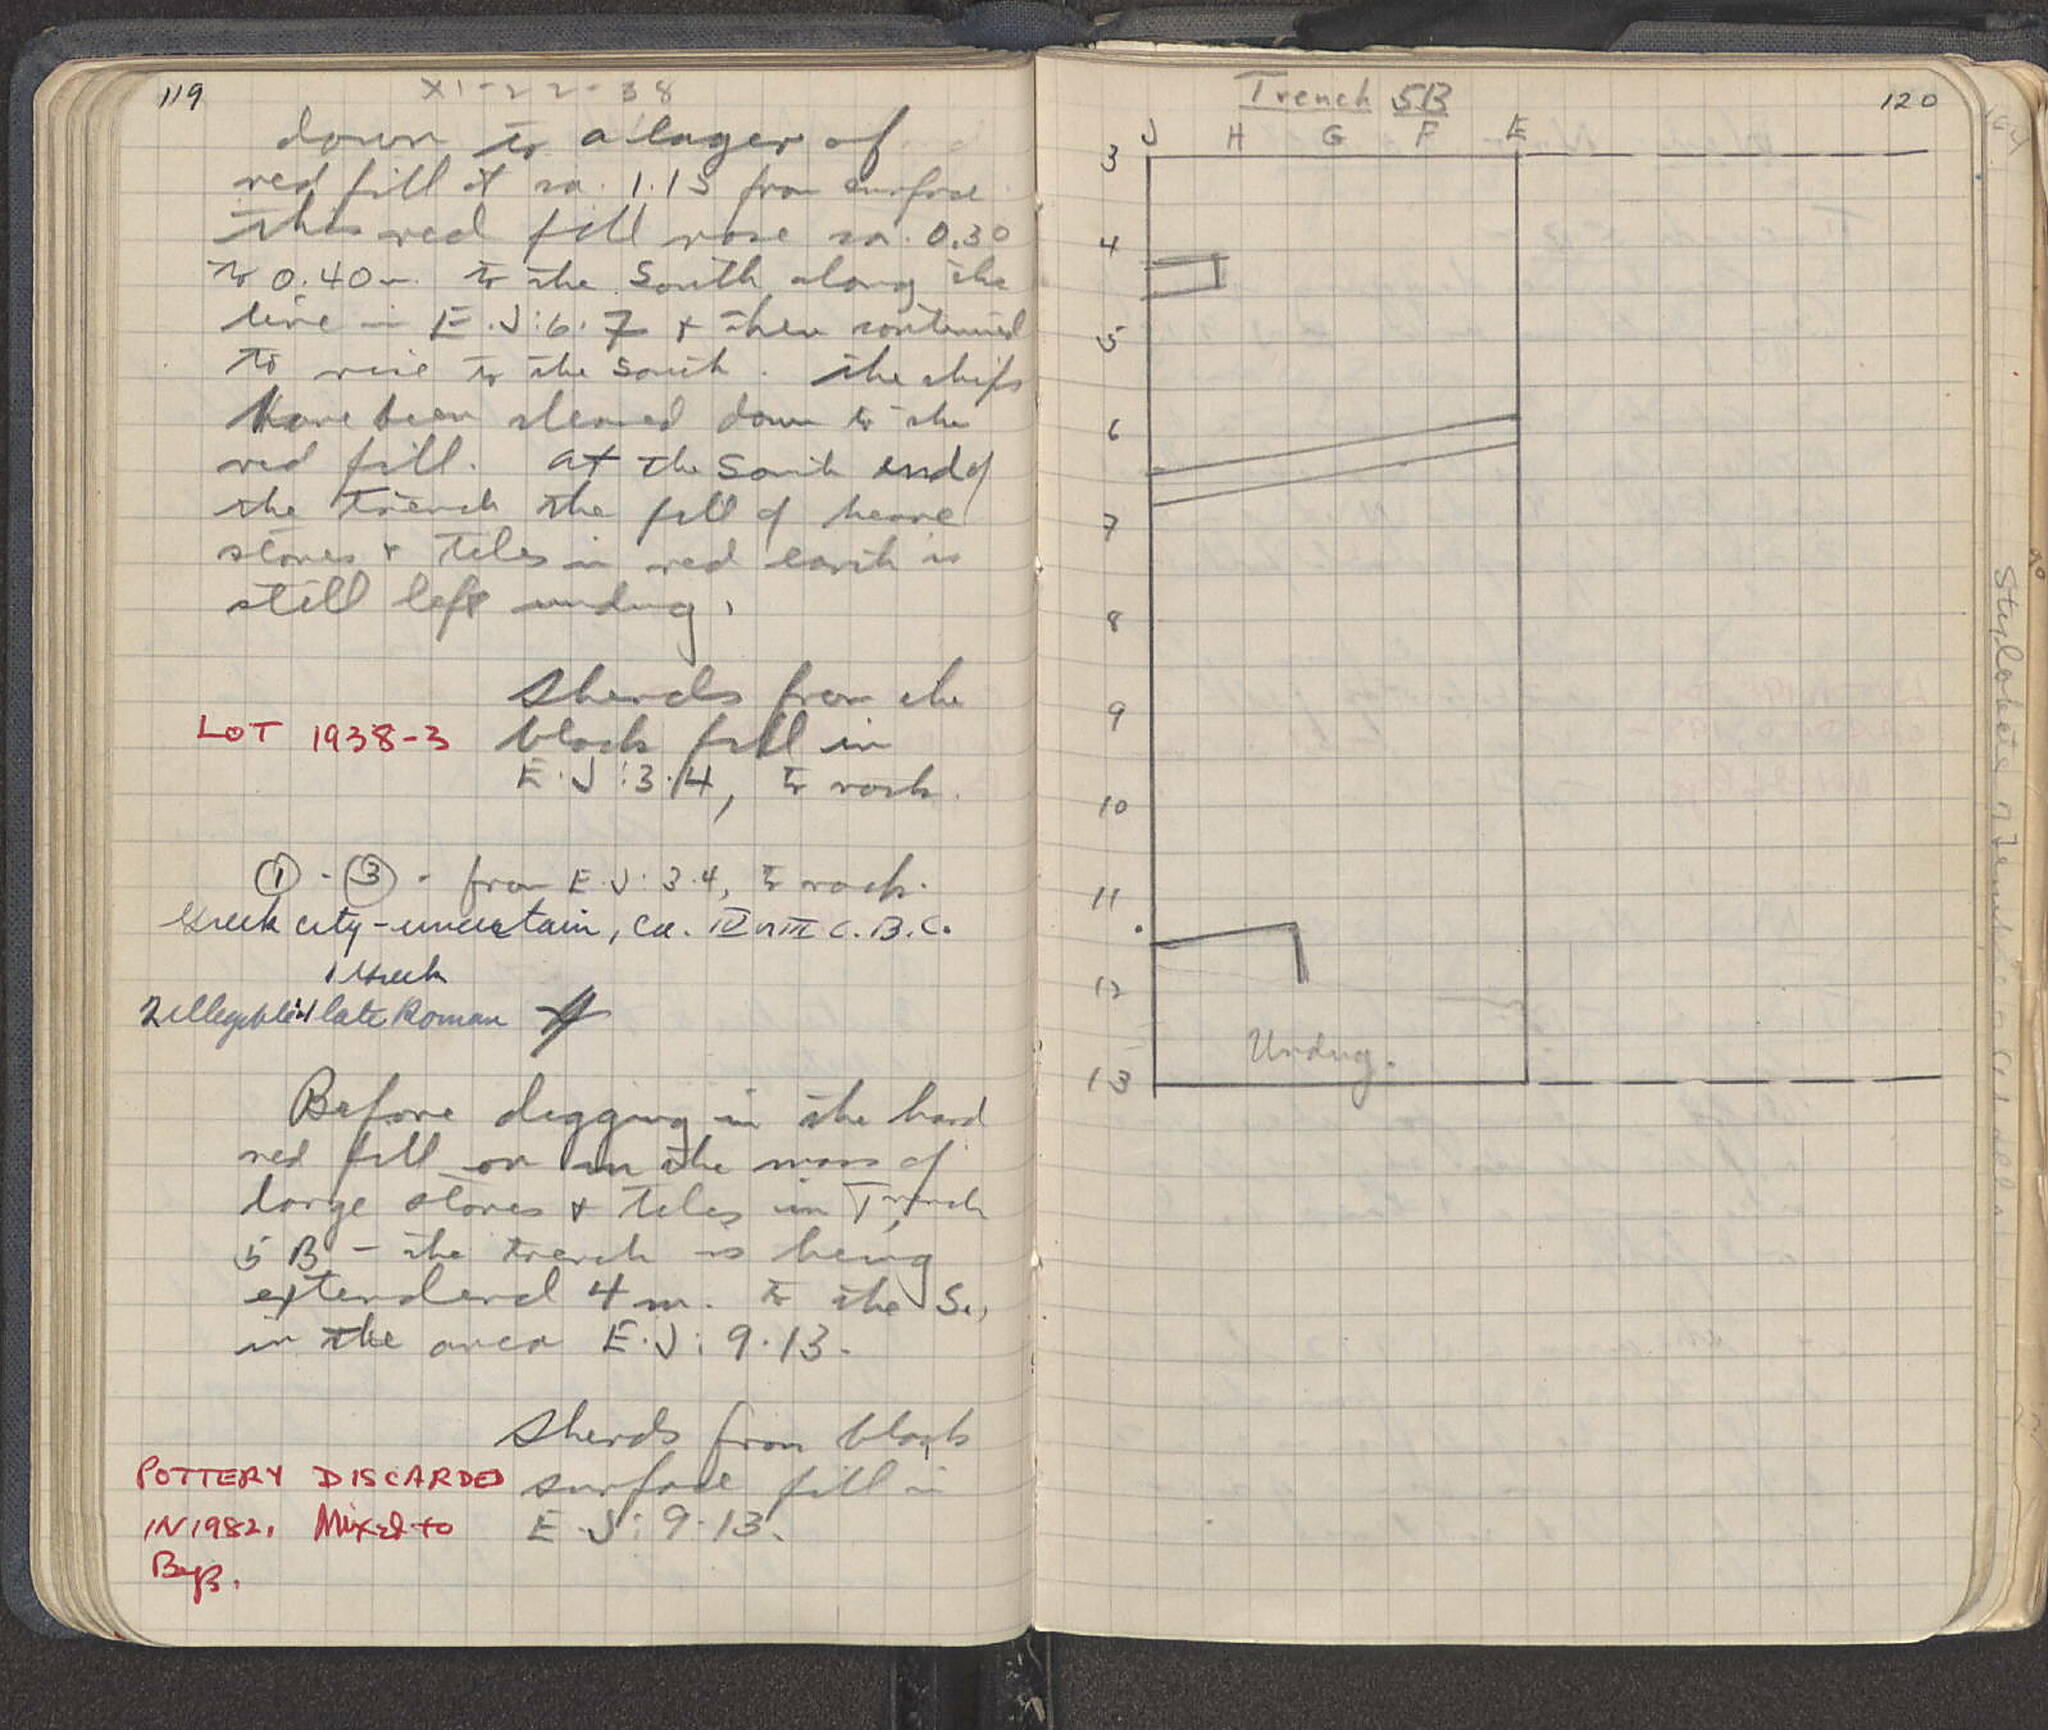 119
XI-22-38
down to a layer of
red fill at ca. 1.15 from surface
This red fill rose ca. 0.30
to 0.40m. to the South along the
line in E.J:6.7 + then continued
to rise to the South. The chips
have been cleared down to the
red fill. At the South end of
the trench the fill of heavy
stones + tiles in red earth is
still left undug.
Sherds from the
LOT 1938-3 black fill in
E.J:3.4, to rock.
① - ③ - from E.J:3.4, to rock.
Greek city-uncertain, ca. IV or III C. B.C.
1 Greek
2 illegible: 1 late Roman
Before digging in the hard
red fill or in the mass of
large stones + tiles in Trench
5B - the trench is being
extended 4 m. to the S.,
in the area E.J: 9.13.
Sherds from black
POTTERY DISCARDED surface fill in
IN 1982. Mixed to E.J: 9.13.
Byz.
Trench 5B
120
J H G F E
3
4
5
6
7
8
9
10
11
12
Undug.
13